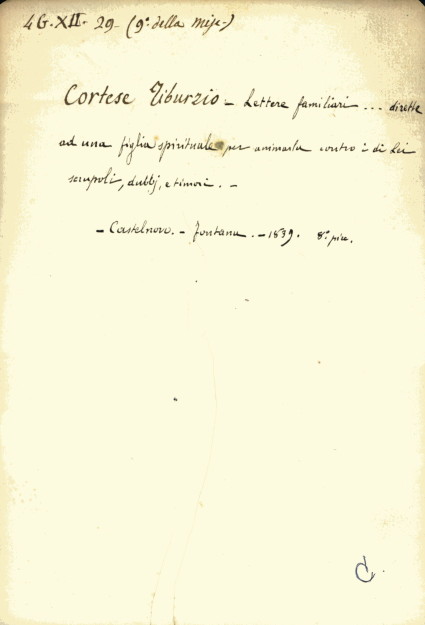 4 G. XII. 29 - (9ª della Misc-)
Cortese Tiburzio - Lettere familiari ... dirette
ad una figlia spirituale per animarla contro i di Lei
scrupoli, dubbj, e timori. -
- Castelnovo. - Fontana. - 1839. 8.º picc.
C.